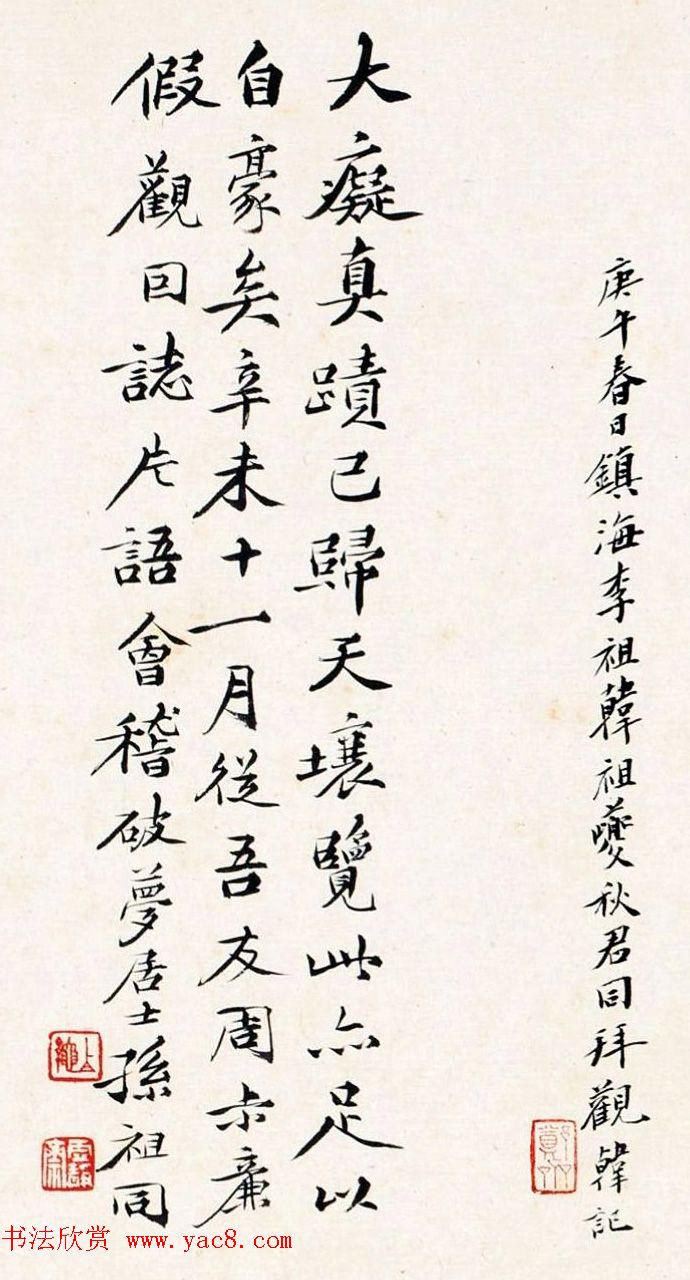 庚午春日鎮海李祖韓祖夔秋君同拜觀韓記
大癡真蹟已歸天壤覽此亦足以
自豪矣辛未十一月從吾友周赤鹿
假觀因誌片語會稽破夢居士孫祖同
书法欣赏 www.yac8.com